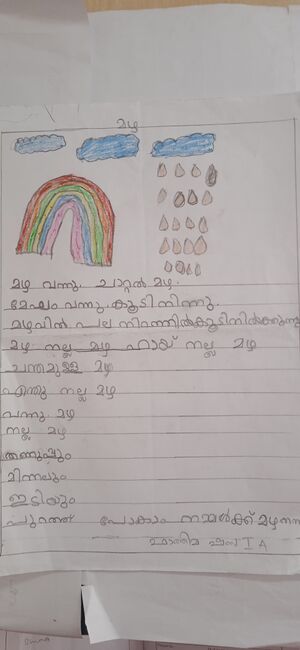 മഴ
മഴ വന്നു. ചാറ്റൽ മഴ.
മേഘം വന്നു. കൂടി നിന്നു.
മഴവിൽ പല നിറത്തിൽ കൂടിനിൽക്കുന്നു
മഴ നല്ല മഴ ഹായ് നല്ല മഴ
ചന്തമുള്ള മഴ
എന്തു നല്ല മഴ
വന്നു മഴ
നല്ല മഴ
തണുപ്പും
മിന്നലും
ഇടിയും
പുറത്ത് പോകാം നമ്മൾക്ക് മഴ
ഫാത്തിമ I A